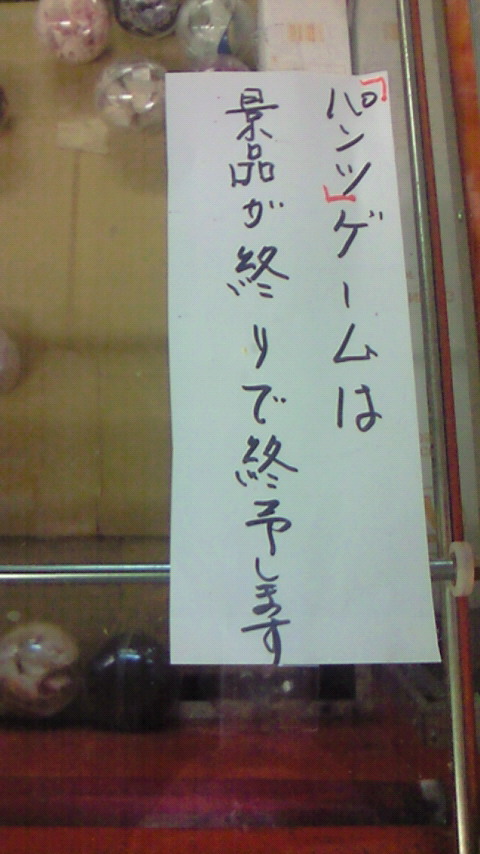 『パンツ』ゲームは
景品が終りで終予します